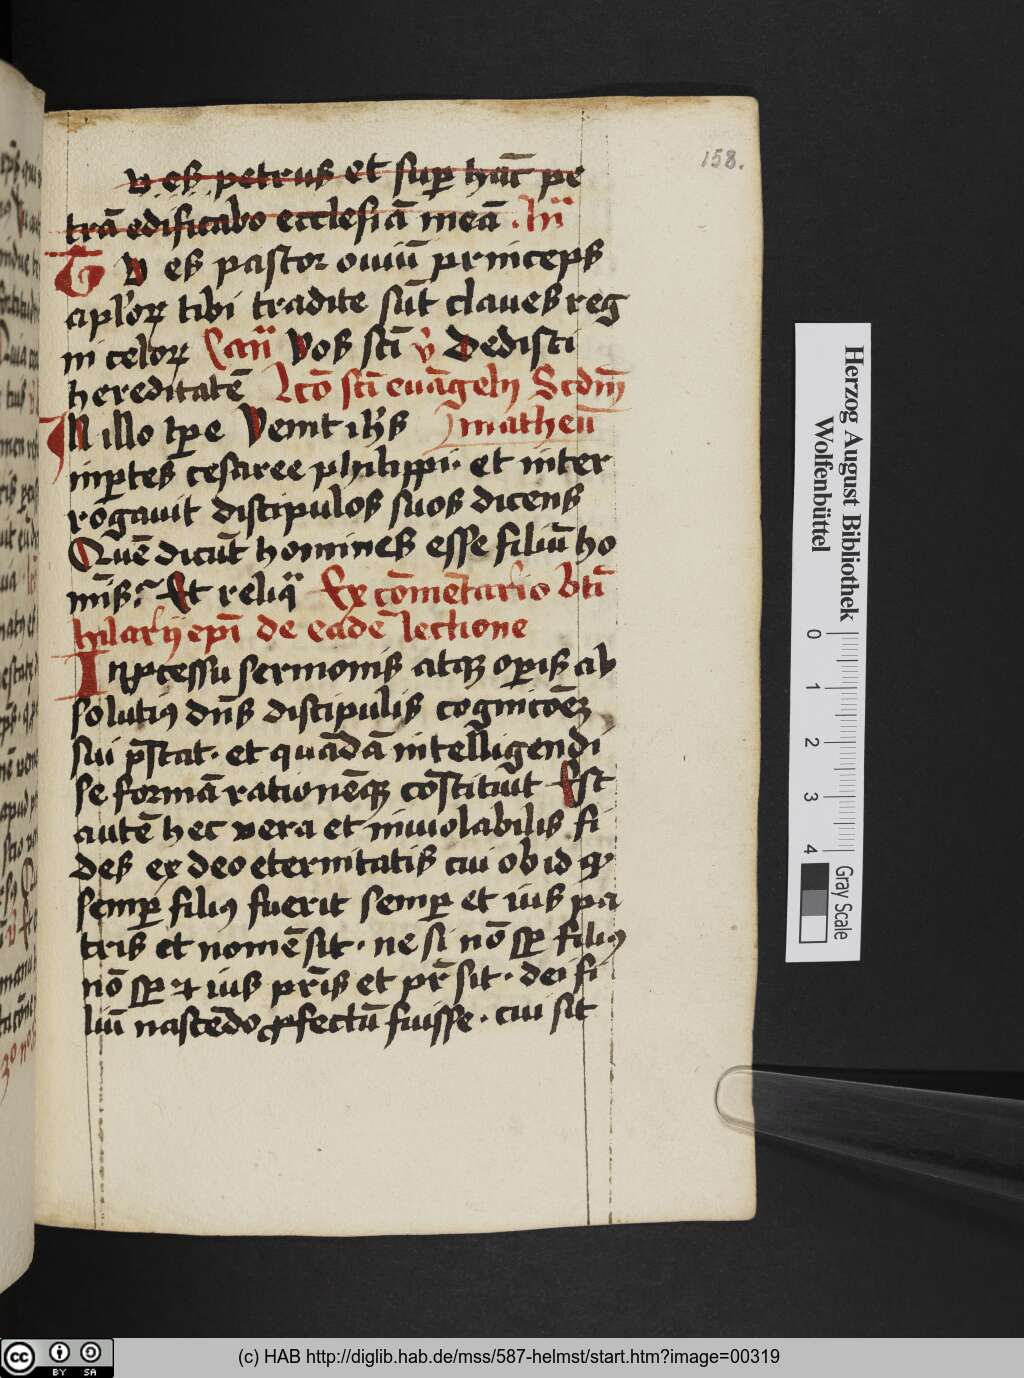 158.
v es petrus et suꝑ hāc pe
trā edificabo ecclesiā meā . An̄
Tv es pastor ouiū princeps
aplōꝝ tibi tradite sūt claues reg
ni celoꝝ Vos scī v̄ Dedisti
hereditatē Lcō scī euāgelij Scdm̄
In illo tꝑe Venit ihs̄ matheū
in ꝑtes cesaree philippi · et inter
rogauit discipulos suos dicens
Quē dicūt homines esse filiū ho
mīs? Et reliq̄ Ex cōmētario btī
hilarij epī de eadē lectione
In ꝓcessu sermonis atqꝫ oꝑis ab
solutiꝰ dn̄s discipulis cognicōeꝫ
sui p̄stat · et quādā intelligendi
se formā rationēqꝫ cōstituit Est
autē hec vera et inuiolabilis fi
des ex deo eternitatis cui ob id ꝙ
semꝑ filiꝰ fuerit semꝑ et ius pa
tris et nomē sit · ne si nō sꝑ filiꝰ
nō sꝑ et ius pr̄is et pr̄ sit · dei fi
liū nascēdo ꝓfectū fuisse · cui sit
Herzog August Bibliothek
Wolfenbüttel
0 1 2 3 4
Gray Scale
cc BY SA
(c) HAB http://diglib.hab.de/mss/587-helmst/start.htm?image=00319